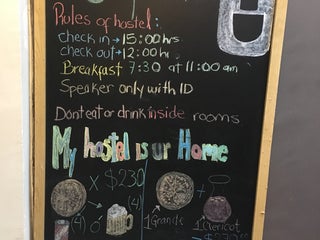 Rules of hostel:
check in → 15:00 hrs
check out → 12:00 hr
Breakfast 7:30 at 11:00 am
Speaker only with ID
Dont eat or drink inside rooms
My hostel is ur Home
x $230
(4) ó (4)
+
1 Grande 1 Clericot